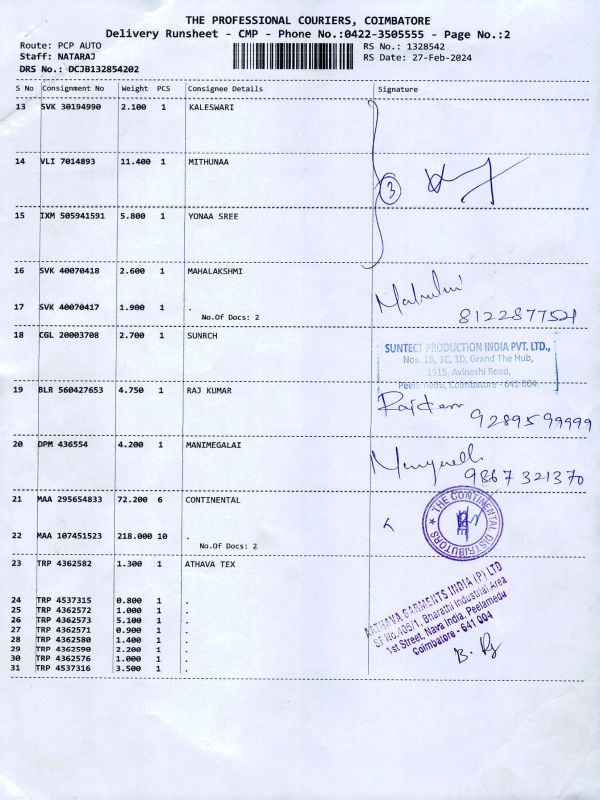 THE PROFESSIONAL COURIERS, COIMBATORE
Delivery Runsheet - CMP - Phone No.:0422-3505555 - Page No.:2
Route: PCP AUTO
Staff: NATARAJ
DRS No.: DCJB132854202
RS No.: 1328542
RS Date: 27-Feb-2024
S No Consignment No Weight PCS Consignee Details Signature
13 SVK 30194990 2.100 1 KALESWARI
14 VLI 7014893 11.400 1 MITHUNAA
3
15 IXM 505941591 5.800 1 YONAA SREE
16 SVK 40070418 2.600 1 MAHALAKSHMI
17 SVK 40070417 1.900 1 .
No.Of Docs: 2
8122877521
18 CGL 20003708 2.700 1 SUNRCH
SUNTECT PRODUCTION INDIA PVT. LTD.,
Nos. 1B, 1C, 1D, Grand The Hub,
1515, Avinashi Road,
Peelamedu, Coimbatore - 641 004.
19 BLR 560427653 4.750 1 RAJ KUMAR
9289599999
20 DPM 436554 4.200 1 MANIMEGALAI
9867321370
21 MAA 295654833 72.200 6 CONTINENTAL
22 MAA 107451523 218.000 10 .
No.Of Docs: 2
THE CONTINENTAL DISTRIBUTORS
23 TRP 4362582 1.300 1 ATHAVA TEX
24 TRP 4537315 0.800 1 .
25 TRP 4362572 1.000 1 .
26 TRP 4362573 5.100 1 .
27 TRP 4362571 0.900 1 .
28 TRP 4362580 1.400 1 .
29 TRP 4362590 2.200 1 .
30 TRP 4362576 1.000 1 .
31 TRP 4537316 3.500 1 .
GARMENTS INDIA (P) LTD
SF No.405/1, Bharathi Industrial Area
1st Street, Nava India, Peelamedu
Coimbatore - 641 004